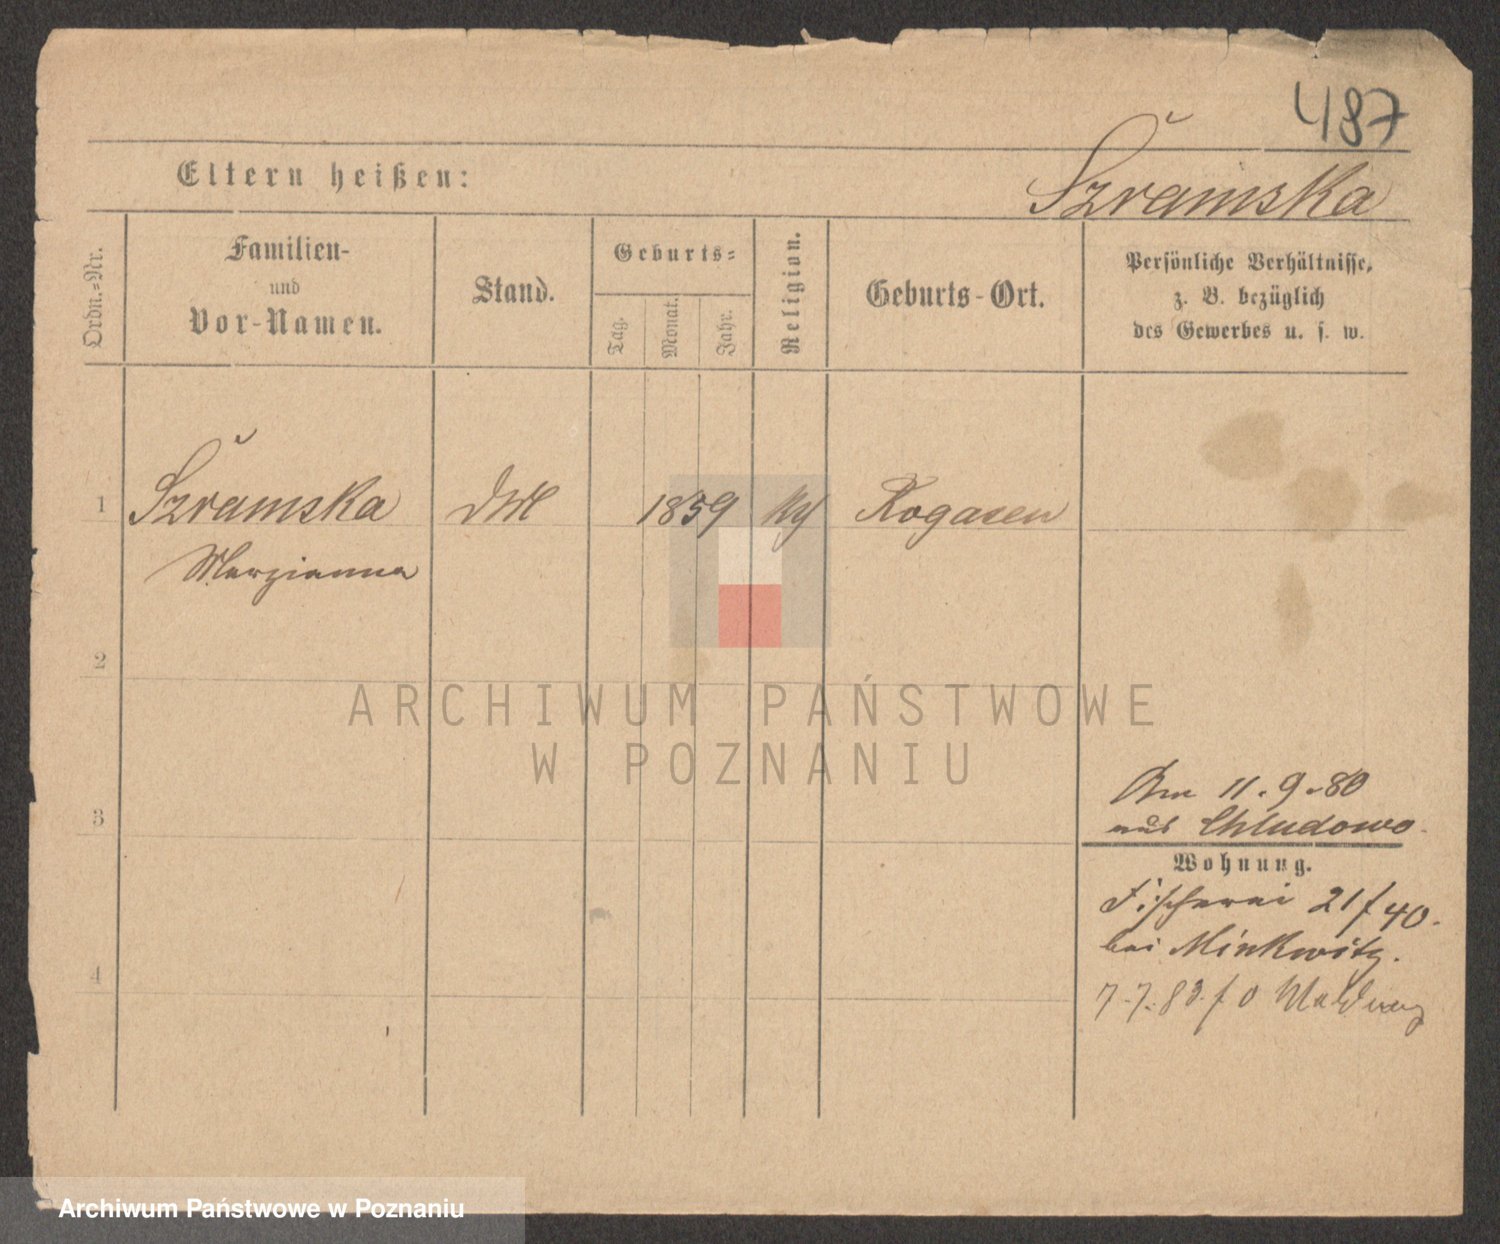 487
Eltern heißen:
Szramska
Ordn.-Nr.
Familien-
und
Vor-Namen.
Stand.
Geburts-
Tag.
Monat.
Jahr.
Religion.
Geburts-Ort.
Persönliche Verhältnisse,
z. B. bezüglich
des Gewerbes u. s. w.
1 Szramska 1859 Rogasen
Marzianna
2
3
4
ARCHIWUM PAŃSTWOWE
W POZNANIU
11.9.80
aus Chludowo.
Wohnung.
Fischerei 21/40.
bei Minkwitz.
7.7.83. f 0 Meldung
Archiwum Państwowe w Poznaniu